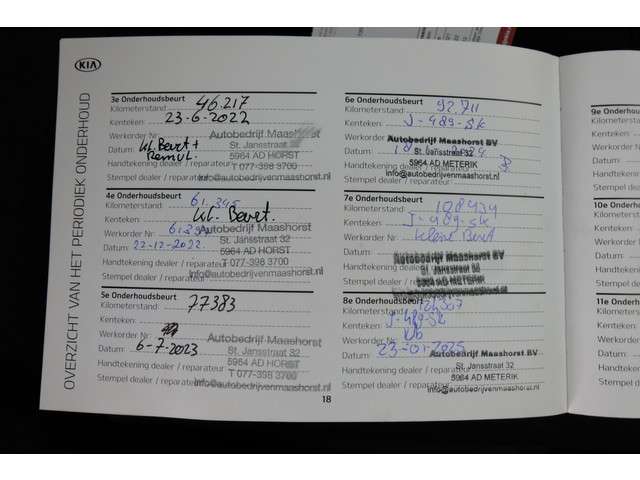 KIA
OVERZICHT VAN HET PERIODIEK ONDERHOUD
3e Onderhoudsbeurt
Kilometerstand: 46.217
Kenteken: 23-6-2022
Werkorder Nr:
Datum: kl. Beurt +
Handtekening dealer / reparateur:
Stempel dealer / reparateur
Autobedrijf Maashorst
St. Jansstraat 32
5964 AD HORST
T 077-398 3700
info@autobedrijvenmaashorst.nl
4e Onderhoudsbeurt
Kilometerstand: 61.345
Kenteken: kl. Beurt.
Werkorder Nr:
Datum: 22-12-2022
Handtekening dealer / reparateur
Stempel dealer / reparateur
Autobedrijf Maashorst
St. Jansstraat 32
5964 AD HORST
T 077-398 3700
info@autobedrijvenmaashorst.nl
5e Onderhoudsbeurt
Kilometerstand: 77383
Kenteken:
Werkorder Nr:
Datum: 6-7-2023
Handtekening dealer / reparateur
Stempel dealer / reparateur
Autobedrijf Maashorst
St. Jansstraat 32
5964 AD HORST
T 077-398 3700
info@autobedrijvenmaashorst.nl
18
6e Onderhoudsbeurt
Kilometerstand: 92.711
Kenteken: J-489-SK
Werkorder
Datum:
Handtekening dealer / reparateur
Stempel dealer / reparateur
Autobedrijf Maashorst BV
St. Jansstraat 32
5964 AD METERIK
info@autobedrijvenmaashorst.nl
7e Onderhoudsbeurt
Kilometerstand: 108434
Kenteken: J-489-SK
Werkorder Nr: kleine Beurt
Datum:
Handtekening dealer / reparateur
Stempel dealer / reparateur
Autobedrijf Maashorst BV
St. Jansstraat 32
5964 AD METERIK
8e Onderhoudsbeurt
Kilometerstand
Kenteken: J-489-SK
Werkorder Nr:
Datum: 23-01-2025
Handtekening dealer / reparateur
Stempel dealer / reparateur
Autobedrijf Maashorst BV
St. Jansstraat 32
5964 AD METERIK
info@autobedrijvenmaashorst.nl
9e Onderh
Kilometers
Kenteken:
Werkorder
Datum:
Handteken
Stempel de
10e Onder
Kilometers
Kenteken:
Werkorder
Datum:
Handteken
Stempel de
11e Onder
Kilometers
Kenteken:
Werkorder
Datum:
Handteken
Stempel d